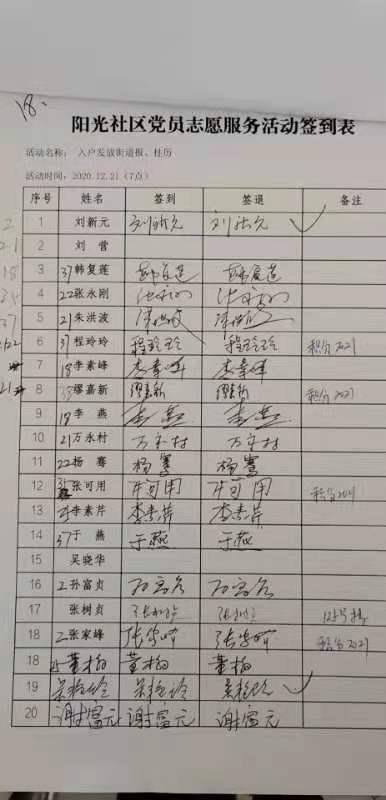 18.
阳光社区党员志愿服务活动签到表
活动名称： 入户发放街道报、挂历
活动时间：2020.12.21（7点）
序号 姓名 签到 签退 备注
1 刘新元 刘新元 刘新元
2 刘 营
3 37韩复莲 韩复莲 韩复莲
4 22张永刚
5 21朱洪波
6 37程玲玲 程玲玲 程玲玲 积分2021
7 18李素峰 李素峰 李素峰
8 缪嘉新 缪嘉新 缪嘉新 积分2021
9 18李 燕 李燕 李燕
10 21万永村 万永村 万永村
11 22杨 骞 杨骞 杨骞
12 张可用 张可用 张可用 积分2021
13 李素芹 李素芹 李素芹
14 37于 燕 于燕 于燕
15 吴晓华
16 2孙富贞
17 张树贞
18 2张家峰 张家峰 张家峰 积分2021
18 董柏 董柏 董柏
19
20 谢富元 谢富元 谢富元